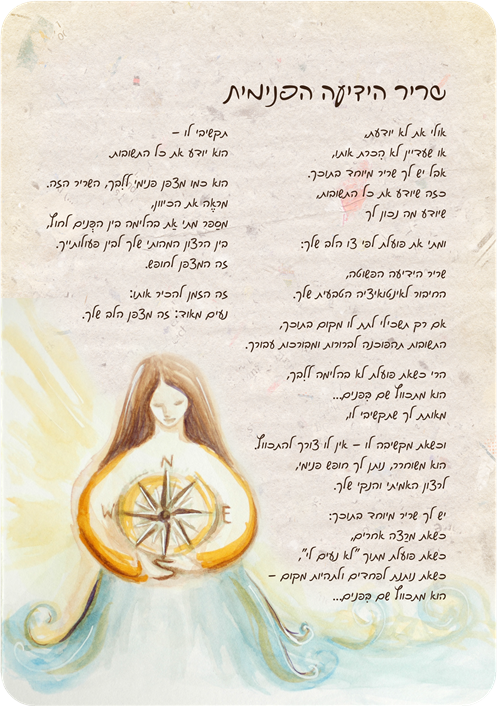 שריר הידיעה הפנימית
אולי את לא יודעת,
או שעדיין לא הִכרת אותו,
אבל יש לך שריר מיוחד בתוכך.
כזה שיודע את כל התשובות,
שיודע מה נכון לך
ומתי את פועלת לפי צו הלב שלך:
שריר הידיעה הפשוטה,
החיבור לאינטואיציה הטבעית שלך.
אם רק תשכילי לתת לו מקום בתוכך,
התשובות תהפוכנה לברורות ומבורכות עבורך.
הרי כשאת פועלת לא בהלימה לליבך,
הוא מתכווץ שם בִּפנים...
מאותת לך שתקשיבי לו,
וכשאת מקשיבה לו – אין לו צורך להתכווץ
הוא משוחרר, נותן לך חופש פנימי,
לרצון האמיתי והנקי שלך.
יש לך שריר מיוחד בתוכך:
כשאת מרַצה אחרים,
כשאת פועלת מתוך "לא נעים לי",
כשאת נותנת לפחדים ולתהיות מקום –
הוא מתכווץ שם בִּפנים...
תקשיבי לו –
הוא יודע את כל התשובות.
הוא כמו מצפן פנימי לליבך, השריר הזה.
מראֶה את הכיוון,
מספר מתי אַת בהלימה בין הפְּנים לחוץ,
בין הרצון המהותי שלך לבין פעולותייך.
זה המצפן לחופש.
זה הזמן להכיר אותו:
נעים מאוד: זה מצפן הלב שלך.
N
W
E
S